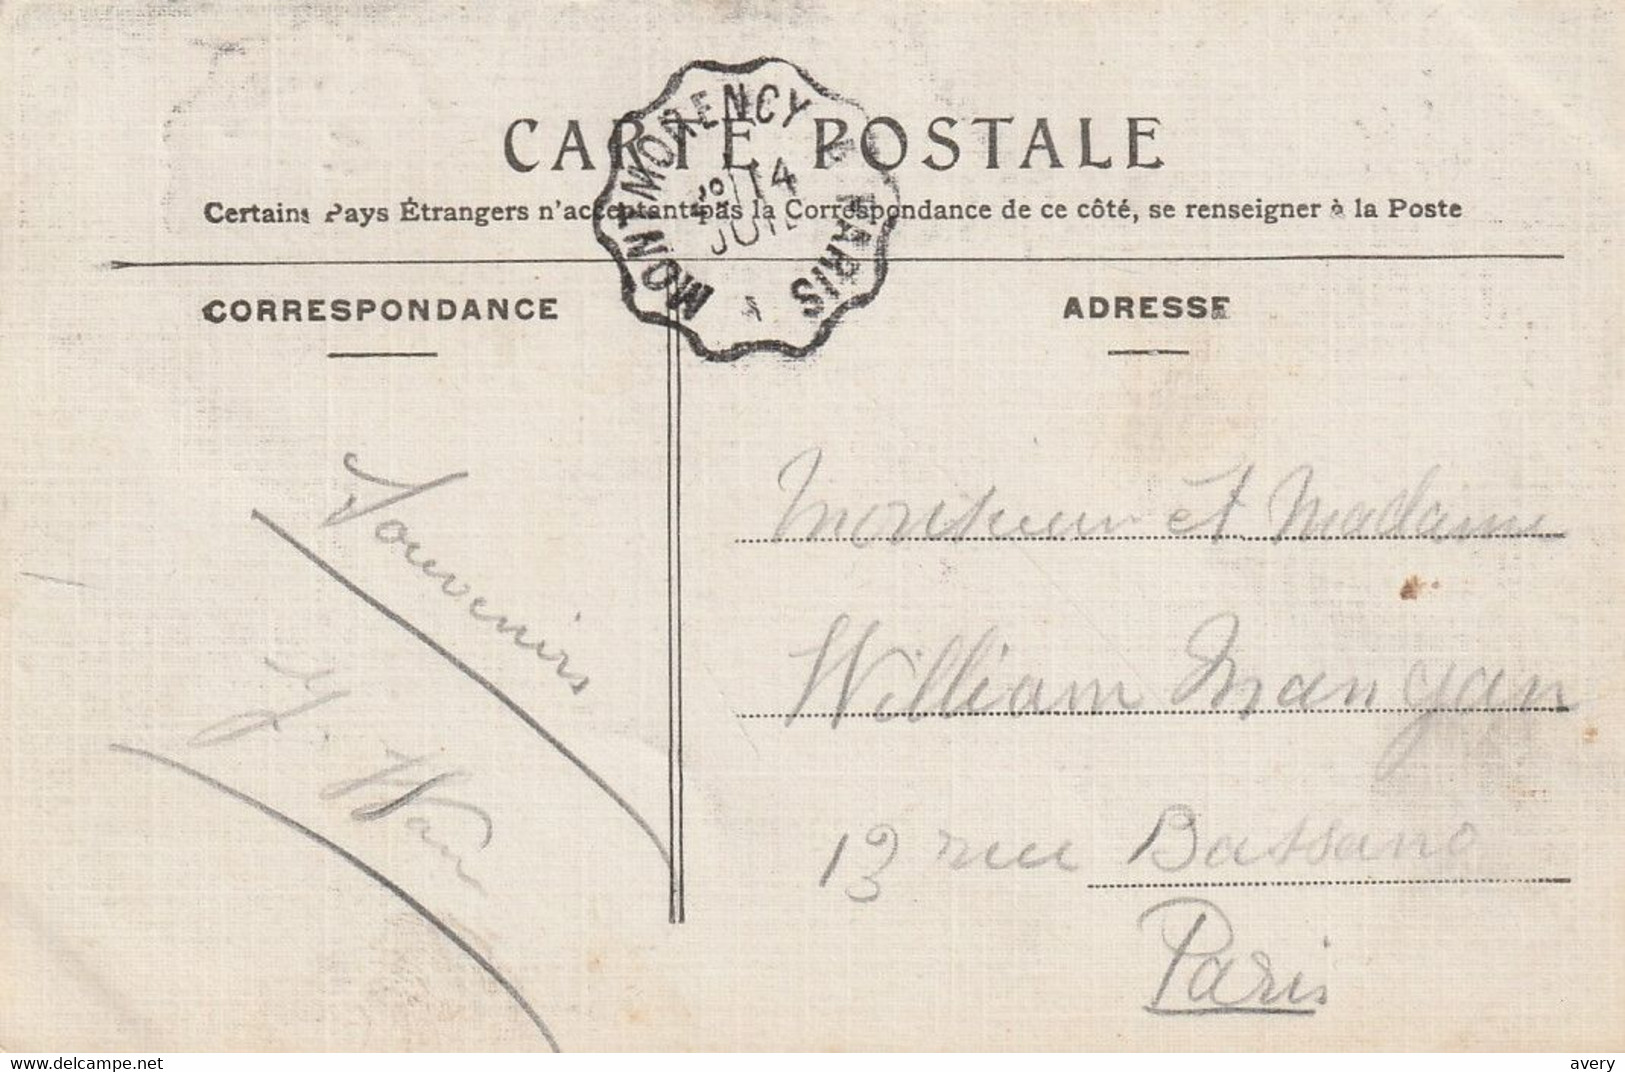 CARTE POSTALE
Certains Pays Étrangers n'acceptant pas la Correspondance de ce côté, se renseigner à la Poste
MONTMORENCY A PARIS
14
JUIL
CORRESPONDANCE
ADRESSE
Souvenirs
Monsieur et Madame
William Mangan
13 rue Bassano
Paris
delcampe.net
avery